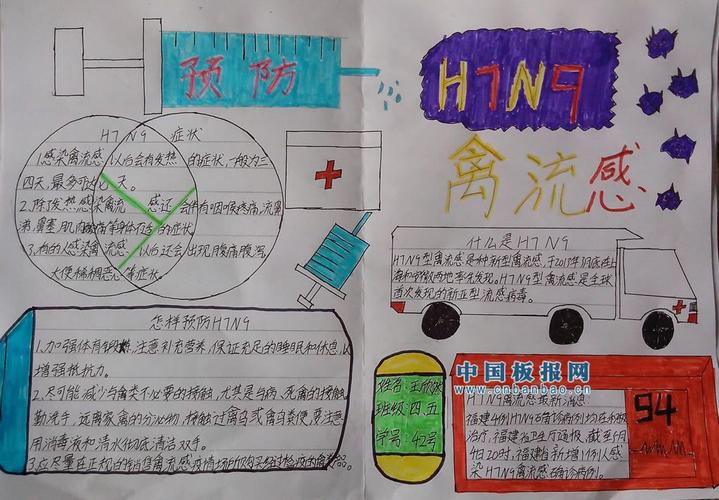 预防
H7N9
禽流感
H7N9 症状
1.感染禽流感以后会有发热的症状,一般为三
四天,最多可达七天。
2.除发热感染禽流感还会伴有咽喉疼痛,流鼻
涕,鼻塞,肌肉酸痛等身体不适的症状
3.有的人感染禽流感以后还会出现腹痛腹泻,
大便稀稠恶心等症状
什么是H7N9
H7N9型禽流感是种新型禽流感,于2013年3月底在上
海和安徽两地率先发现。H7N9型禽流感是全球
首次发现的新亚型流感病毒。
怎样预防H7N9
1.加强体育锻炼,注意补充营养,保证充足的睡眠和休息,以
增强抵抗力。
2.尽可能减少与禽类不必要的接触,尤其是与病、死禽的接触
勤洗手,远离家禽的分泌物,接触过禽鸟或禽鸟类便,要注意
用消毒液和清水彻底清洁双手。
3.应尽量在正规的销售
姓名:王欣
班级 四、五
学号 42号
中国板报网
www.cnbanbao.cn
H7N9禽流感最新消息
福建4例H7N9确诊病例均在积极
治疗,福建省卫生厅通报,截至
4日20时,福建省新增1例人感
染H7N9禽流感确诊病例。
94